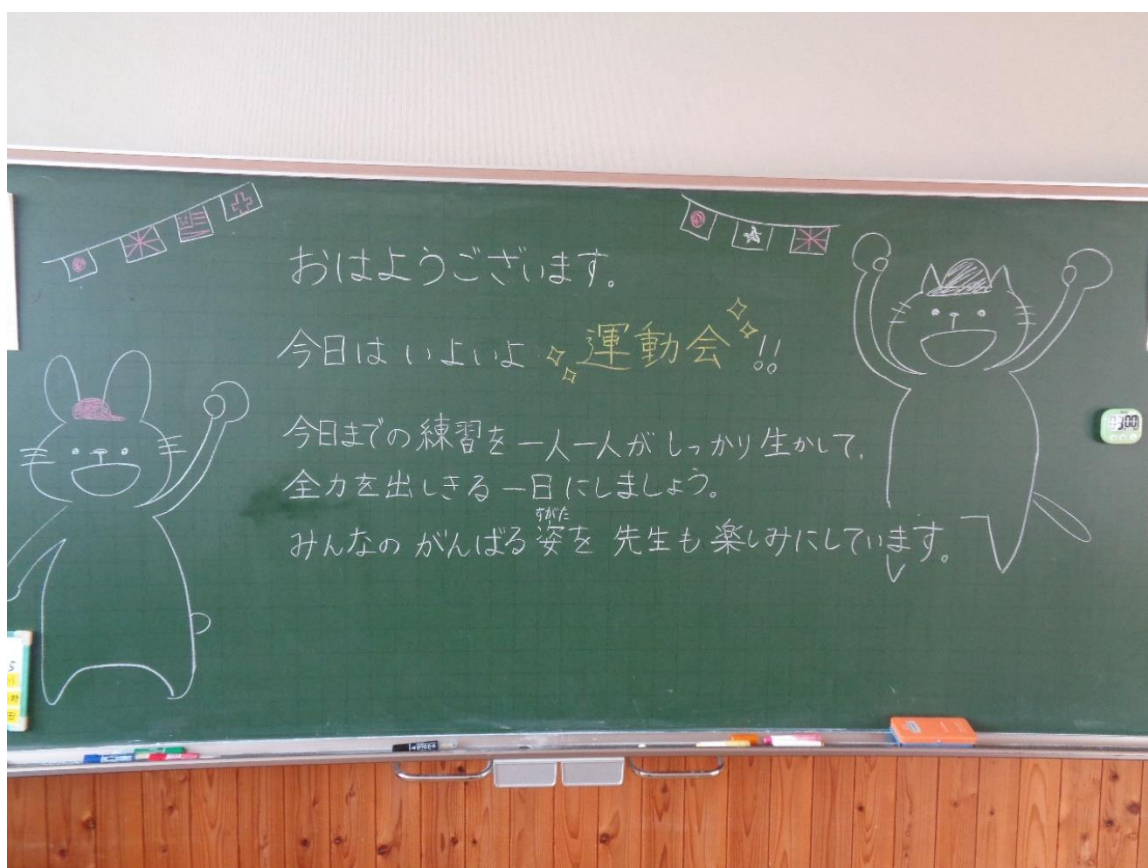 おはようございます。
今日は いよいよ 運動会!!
今日までの練習を一人一人がしっかり生かして、
全力を出しきる一日にしましょう。
すがた
みんなの がんばる姿を 先生も楽しみにしています。